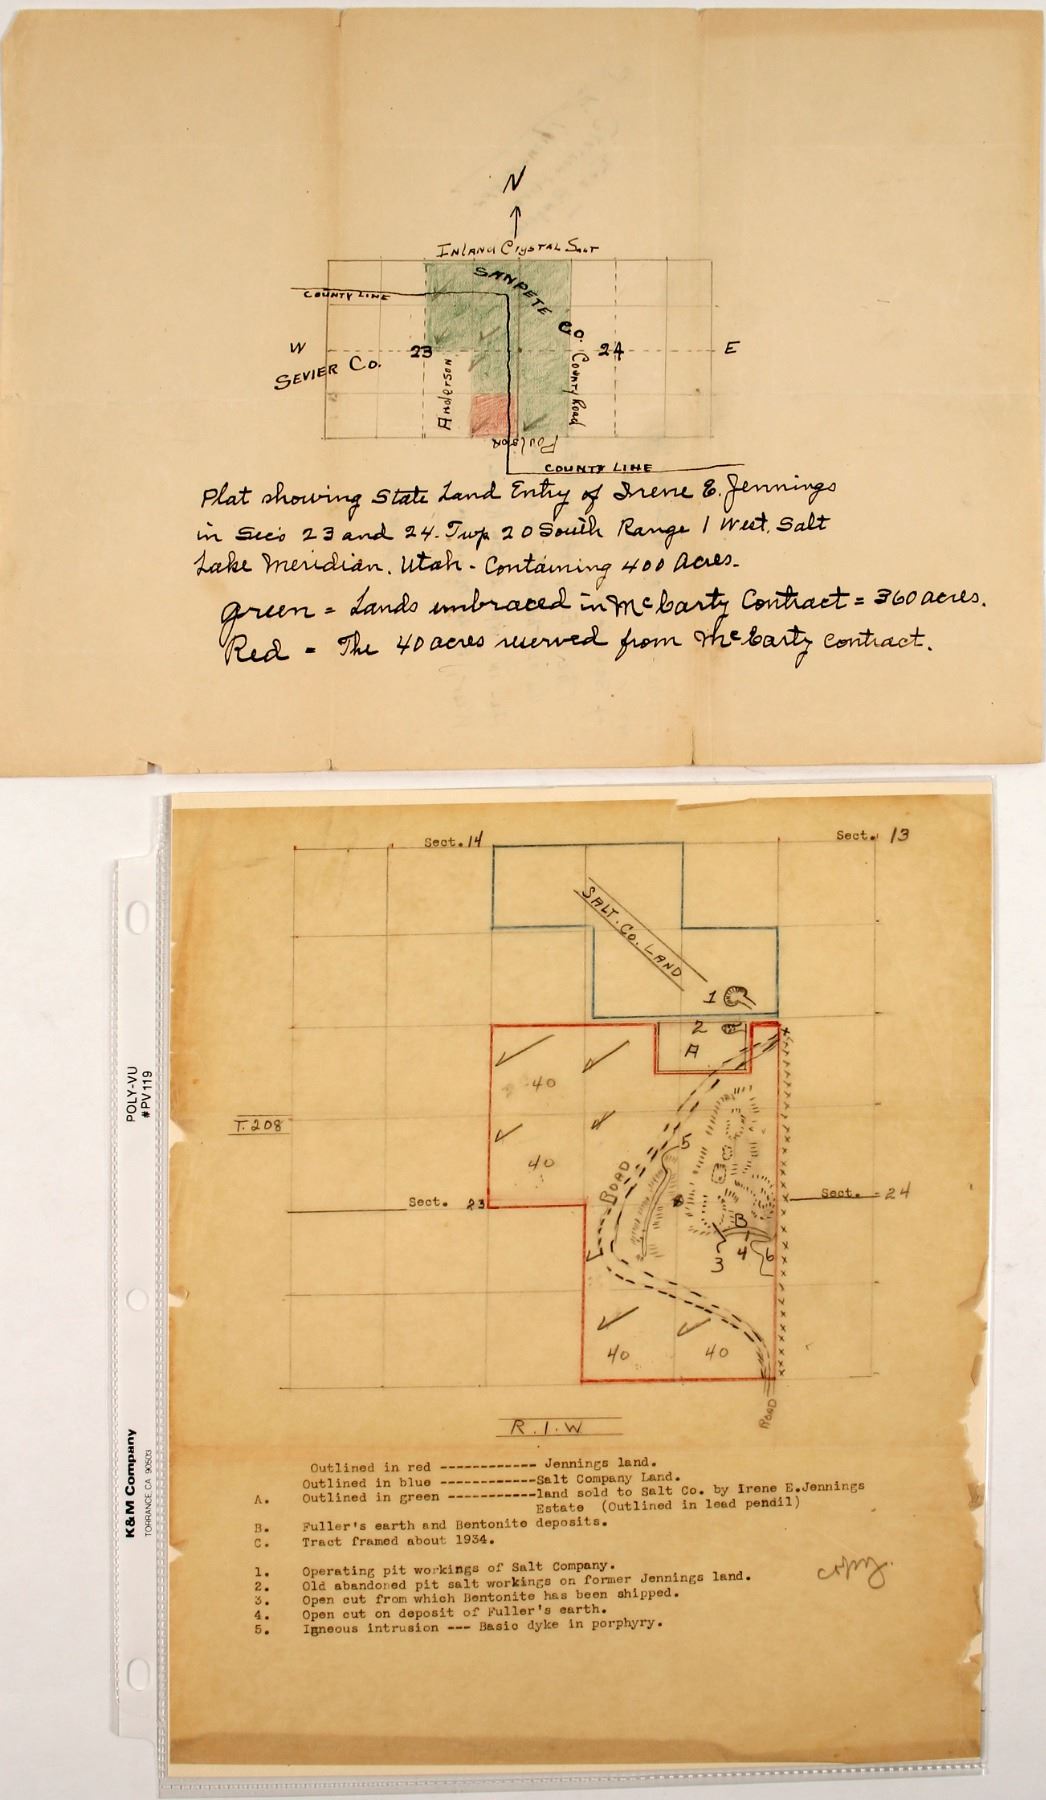 N
INLAND CRYSTAL SALT
SANPETE CO.
COUNTY LINE
W
23
24
E
SEVIER CO.
Anderson
County Road
Poulson
COUNTY LINE
Plat showing State Land Entry of Irene E. Jennings
in Sec's 23 and 24. Twp 20 South Range 1 West, Salt
Lake Meridian, Utah - Containing 400 Acres.
Green = Lands embraced in McCarty Contract = 360 acres.
Red = The 40 acres reserved from McCarty Contract.
POLY-VU
#PV119
K&M Company
TORRANCE, CA 90503
Sect. 14
Sect. 13
SALT. CO. LAND
1
2
A
40
T. 20S
40
5
ROAD
Sect. 23
Sect. 24
B
3
4
6
40
40
ROAD
R. 1. W
Outlined in red ------------ Jennings land.
Outlined in blue ------------Salt Company Land.
A. Outlined in green -----------land sold to Salt Co. by Irene E.Jennings
Estate (Outlined in lead pendil)
B. Fuller's earth and Bentonite deposits.
C. Tract framed about 1934.
1. Operating pit workings of Salt Company.
2. Old abandoned pit salt workings on former Jennings land.
3. Open cut from which Bentonite has been shipped.
4. Open cut on deposit of Fuller's earth.
5. Igneous intrusion --- Basic dyke in porphyry.
copy.